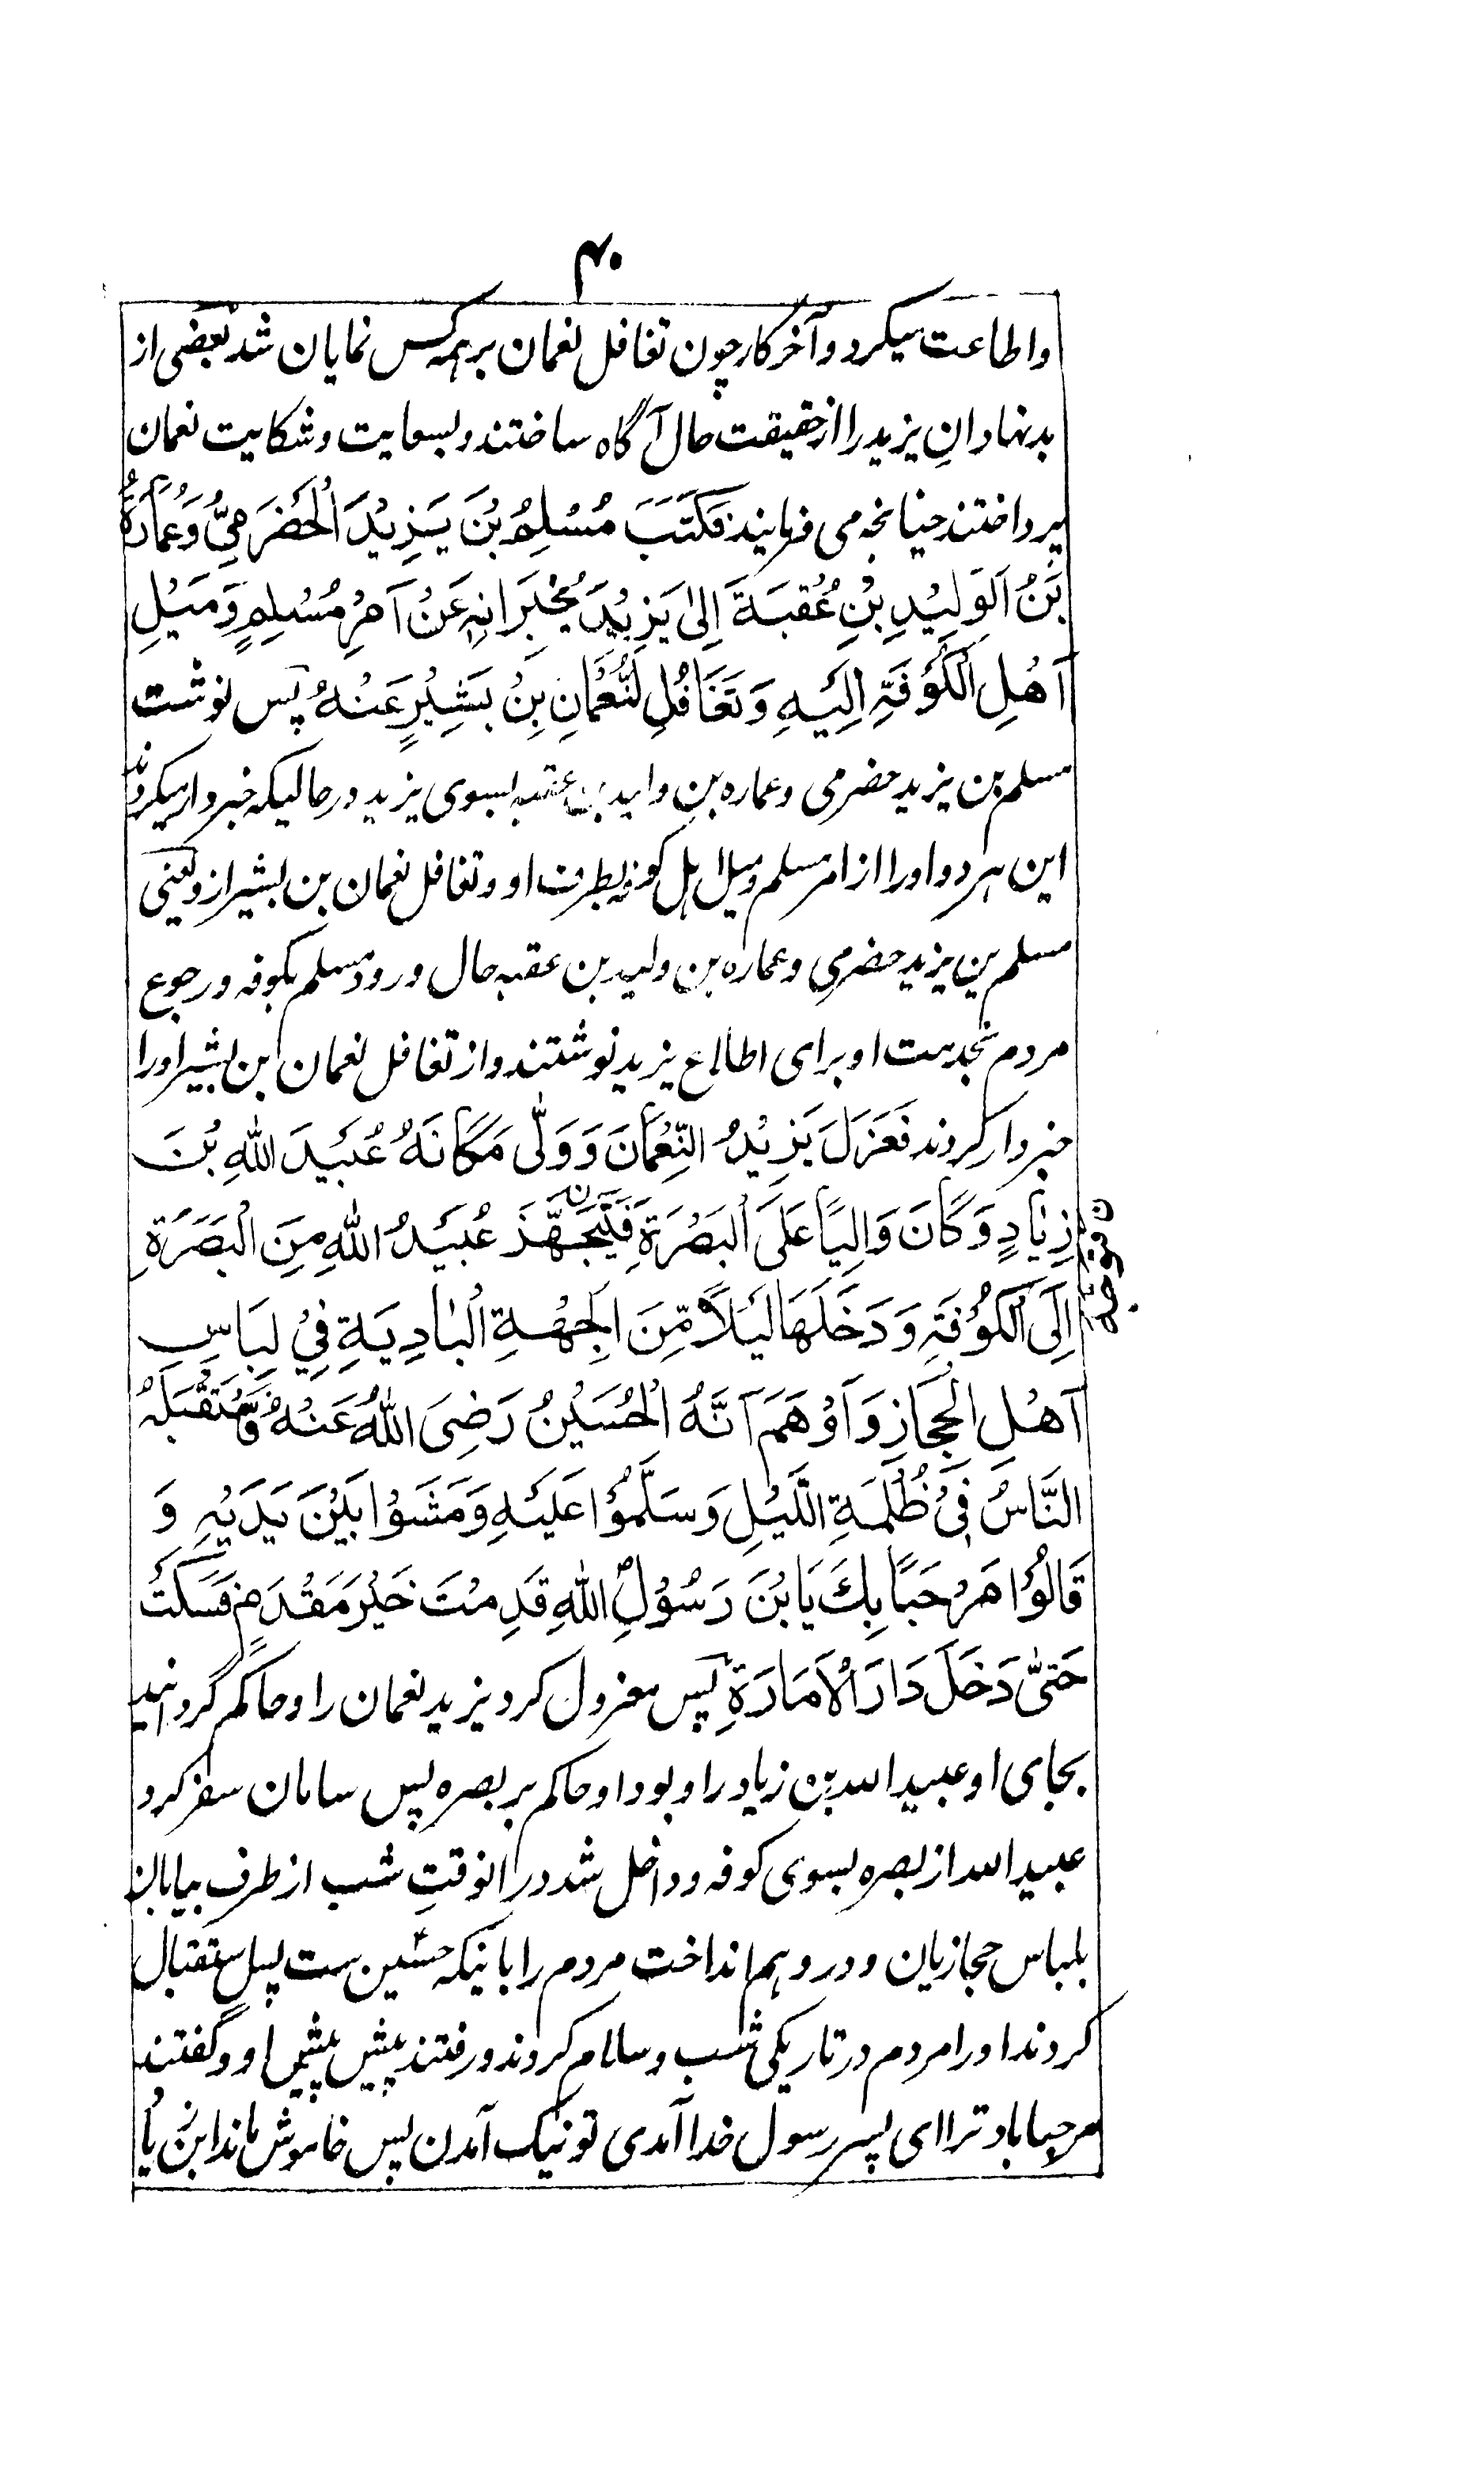 ۴۰
واطاعت میکرد و آخر کار چون تغافل نعمان بر همه کس نمایان شد بعضی از
بدنهادانِ یزید را از حقیقت حال آگاه ساختند و بسعایت و شکایت نعمان
پرداختند چنانچه می فرمایند فَكَتَبَ مُسْلِمُ بْنَ يَزِيْدَ الْحَضْرَمِيُّ وَعُمَارَةُ
بْنُ الْوَلِيْدِ بْنِ عُقْبَةَ اِلٰى يَزِيْدَ يُخْبِرَانِهٖ عَنْ اَمْرِ مُسْلِمٍ وَمَيْلِ
اَهْلِ الْكُوْفَةِ اِلَيْهِ وَتَغَافُلِ النُّعْمَانِ بْنِ بَشِيْرٍ عَنْهُ پس نوشت
مسلم بن یزید حضرمی و عماره بن ولید بن عقبه بسوی یزید در حالیکه خبردار میکردند
این هر دو اورا از امر مسلم و میل اہل کوفه بطرف او و تغافل نعمان بن بشیر ازو یعنی
مسلم بن یزید حضرمی و عماره بن ولید بن عقبه حال ورود مسلم بکوفه و رجوع
مردم بخدمت او برای اطلاع یزید نوشتند و از تغافل نعمان ابن بشیر اورا
خبردار کردند فَعَزَلَ يَزِيْدُ النُّعْمَانَ وَوَلّٰى مَكَانَهُ عُبَيْدَ اللهِ بْنَ
زِيَادٍ وَكَانَ وَالِيًا عَلَى الْبَصْرَةِ فَيَتَجَهَّزَ عُبَيْدُ اللهِ مِنَ الْبَصْرَةِ
اِلَى الْكُوْفَةِ وَدَخَلَهَا لَيْلًا مِّنَ الْجِهْةِ الْبَادِيَةِ فِيْ لِبَاسِ
اَهْلِ الْحِجَازِ وَاَوْهَمَ اَنَّهُ الْحُسَيْنُ رَضِيَ اللهُ عَنْهُ فَاسْتَقْبَلَهُ
النَّاسُ فِيْ ظُلْمَةِ اللَّيْلِ وَسَلَّمُوْا عَلَيْهِ وَمَشَوْا بَيْنَ يَدَيْهِ وَ
قَالُوْا مَرْحَبًا بِكَ يَا بْنَ رَسُوْلِ اللهِ قَدِمْتَ خَيْرَ مَقْدَمٍ فَسَكَتَ
حَتّٰى دَخَلَ دَارَ الْاَمَارَةِ پس معزول کرد یزید نعمان را و حاکم گردانید
بجای او عبیدالله بن زیاد را و بود او حاکم بر بصره پس سامان سفر کرد
عبیدالله از بصره بسوی کوفه و داخل شد در انوقتِ شب از طرف بیابان
بلباس حجازیان و در وہم انداخت مردم را باینکه حسین ست پس استقبال
کردند اورا مردم در تاریکی شب و سلام کردند و رفتند پیش پیش او و گفتند
مرحبا باد ترا ای پسر رسول خدا آمدی تو نیک آمدن پس خاموش ماند ابن زیاد